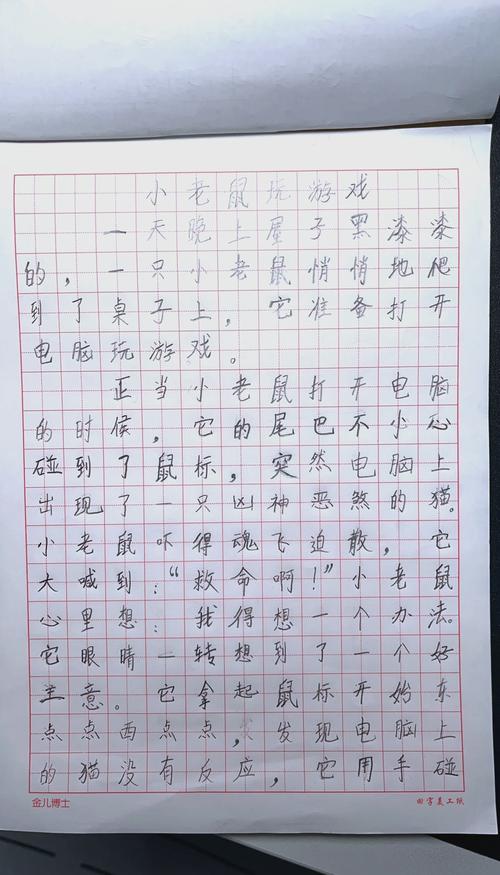 小老鼠玩游戏
一天晚上屋子黑漆漆
的，一只小老鼠悄悄地爬
到了桌子上，它准备打开
电脑玩游戏。
正当小老鼠打开电脑
的时候，它的尾巴不小心
碰到了鼠标，突然电脑上
出现了一只凶神恶煞的猫。
小老鼠吓得魂飞迫散，它
大喊到：“救命啊！”小老鼠
心里想：我得想一个办法。
它眼睛一转想到了一个好
主意。它拿起鼠标开始东
点点西点点，发现电脑上
的猫没有反应，它用手碰
金儿博士
田字美工纸